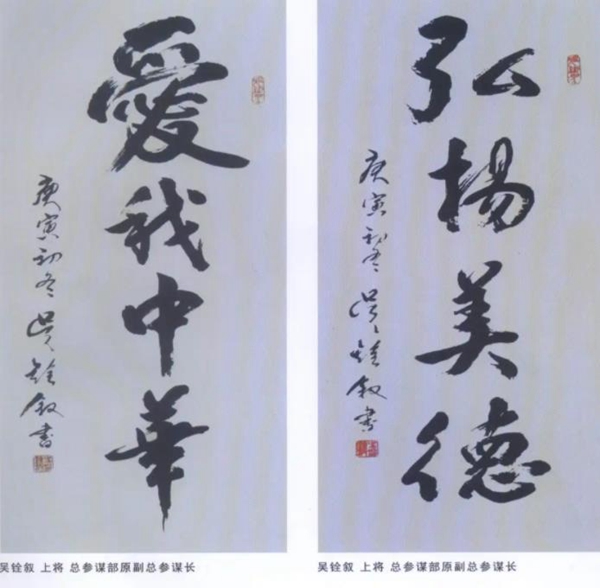 愛我中華
庚寅初冬 吳銓敘書
吴铨叙 上将 总参谋部原副总参谋长
弘揚美德
庚寅初冬 吳銓敘書
吴铨叙 上将 总参谋部原副总参谋长